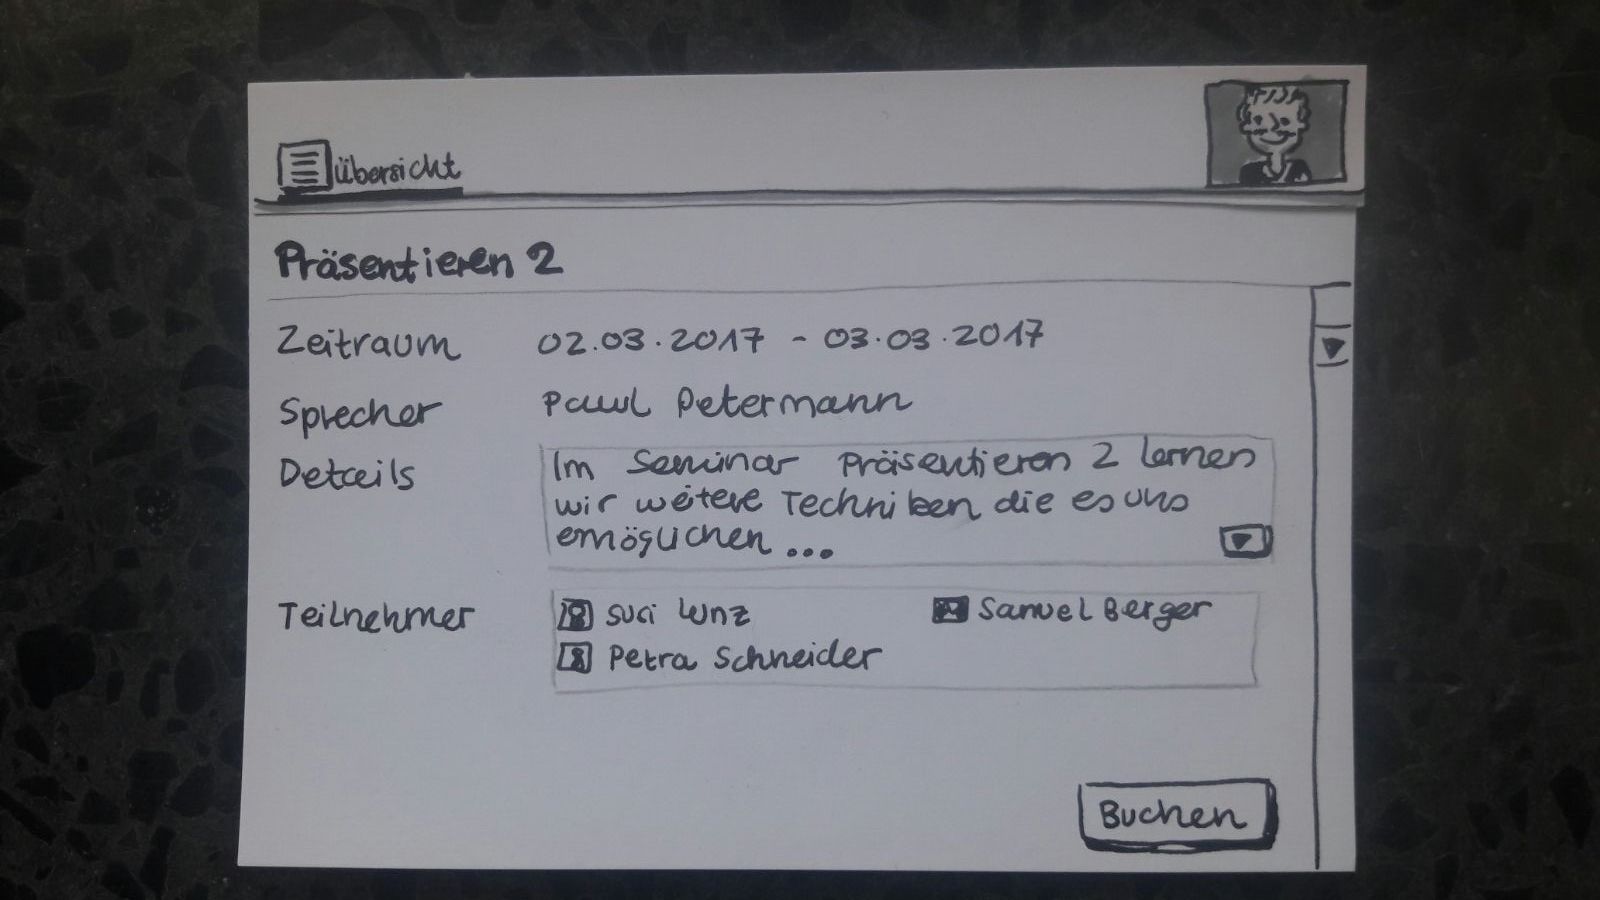 Übersicht
Präsentieren 2
Zeitraum 02.03.2017 - 03.03.2017
Sprecher Paul Petermann
Details Im Seminar Präsentieren 2 lernen
wir weitere Techniken die es uns
ermöglichen ...
Teilnehmer Susi Lenz Samuel Berger
Petra Schneider
Buchen